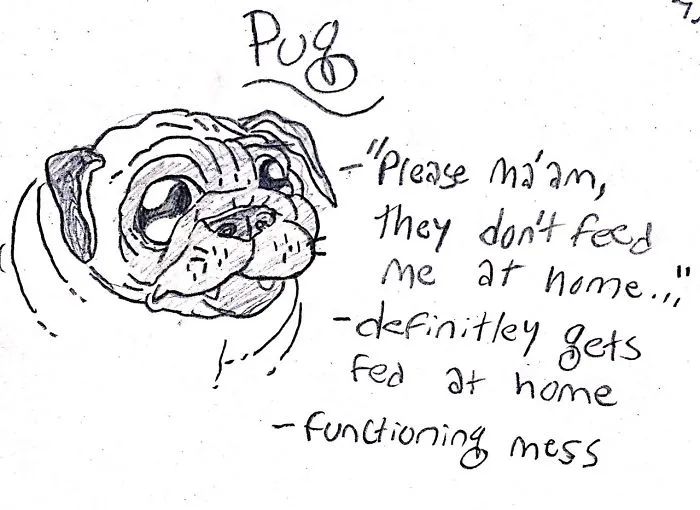 Pug
-"Please ma'am,
they don't feed
me at home..."
-definitley gets
fed at home
-functioning mess